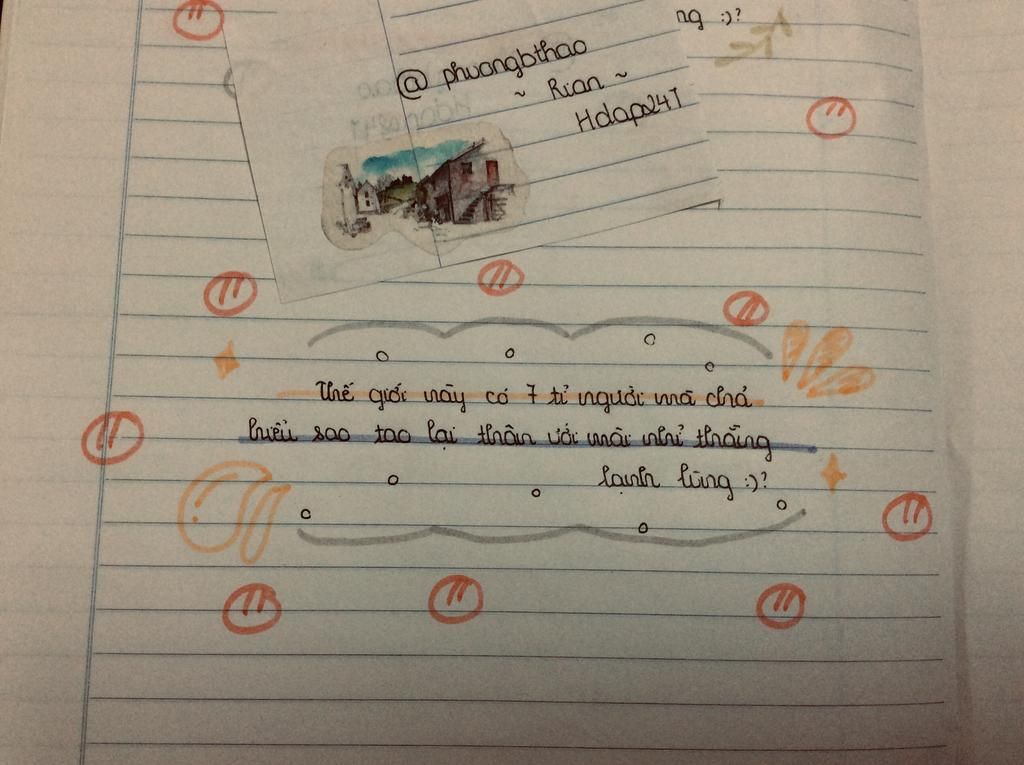 ng :)?
@ phuongbthao
~ Rian ~
Hdaps247
Thế giới này có 7 tỉ người mà chả
hiểu sao tao lại thân với mài như thằng
lạnh lùng :)?